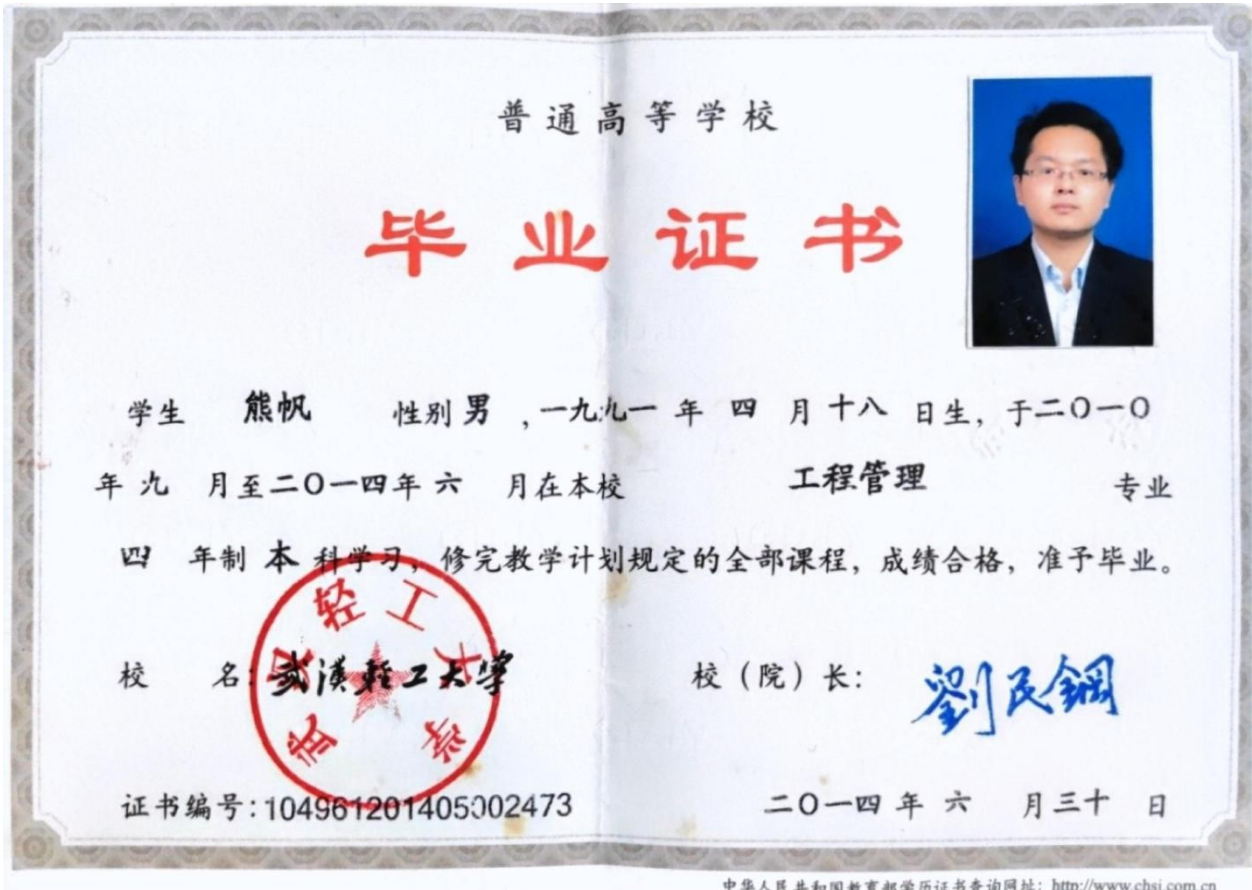 普通高等学校
毕业证书
学生 熊帆 性别 男 ，一九九一 年 四 月 十八 日生，于二〇一〇
年 九 月至二〇一四年 六 月在本校 工程管理 专业
四 年制 本 科学习，修完教学计划规定的全部课程，成绩合格，准予毕业。
武汉轻工大学
校 名：武漢輕工大學 校（院）长：劉民鋼
证书编号：104961201405002473 二〇一四 年 六 月三十 日
中华人民共和国教育部学历证书查询网址：http://www.chsi.com.cn